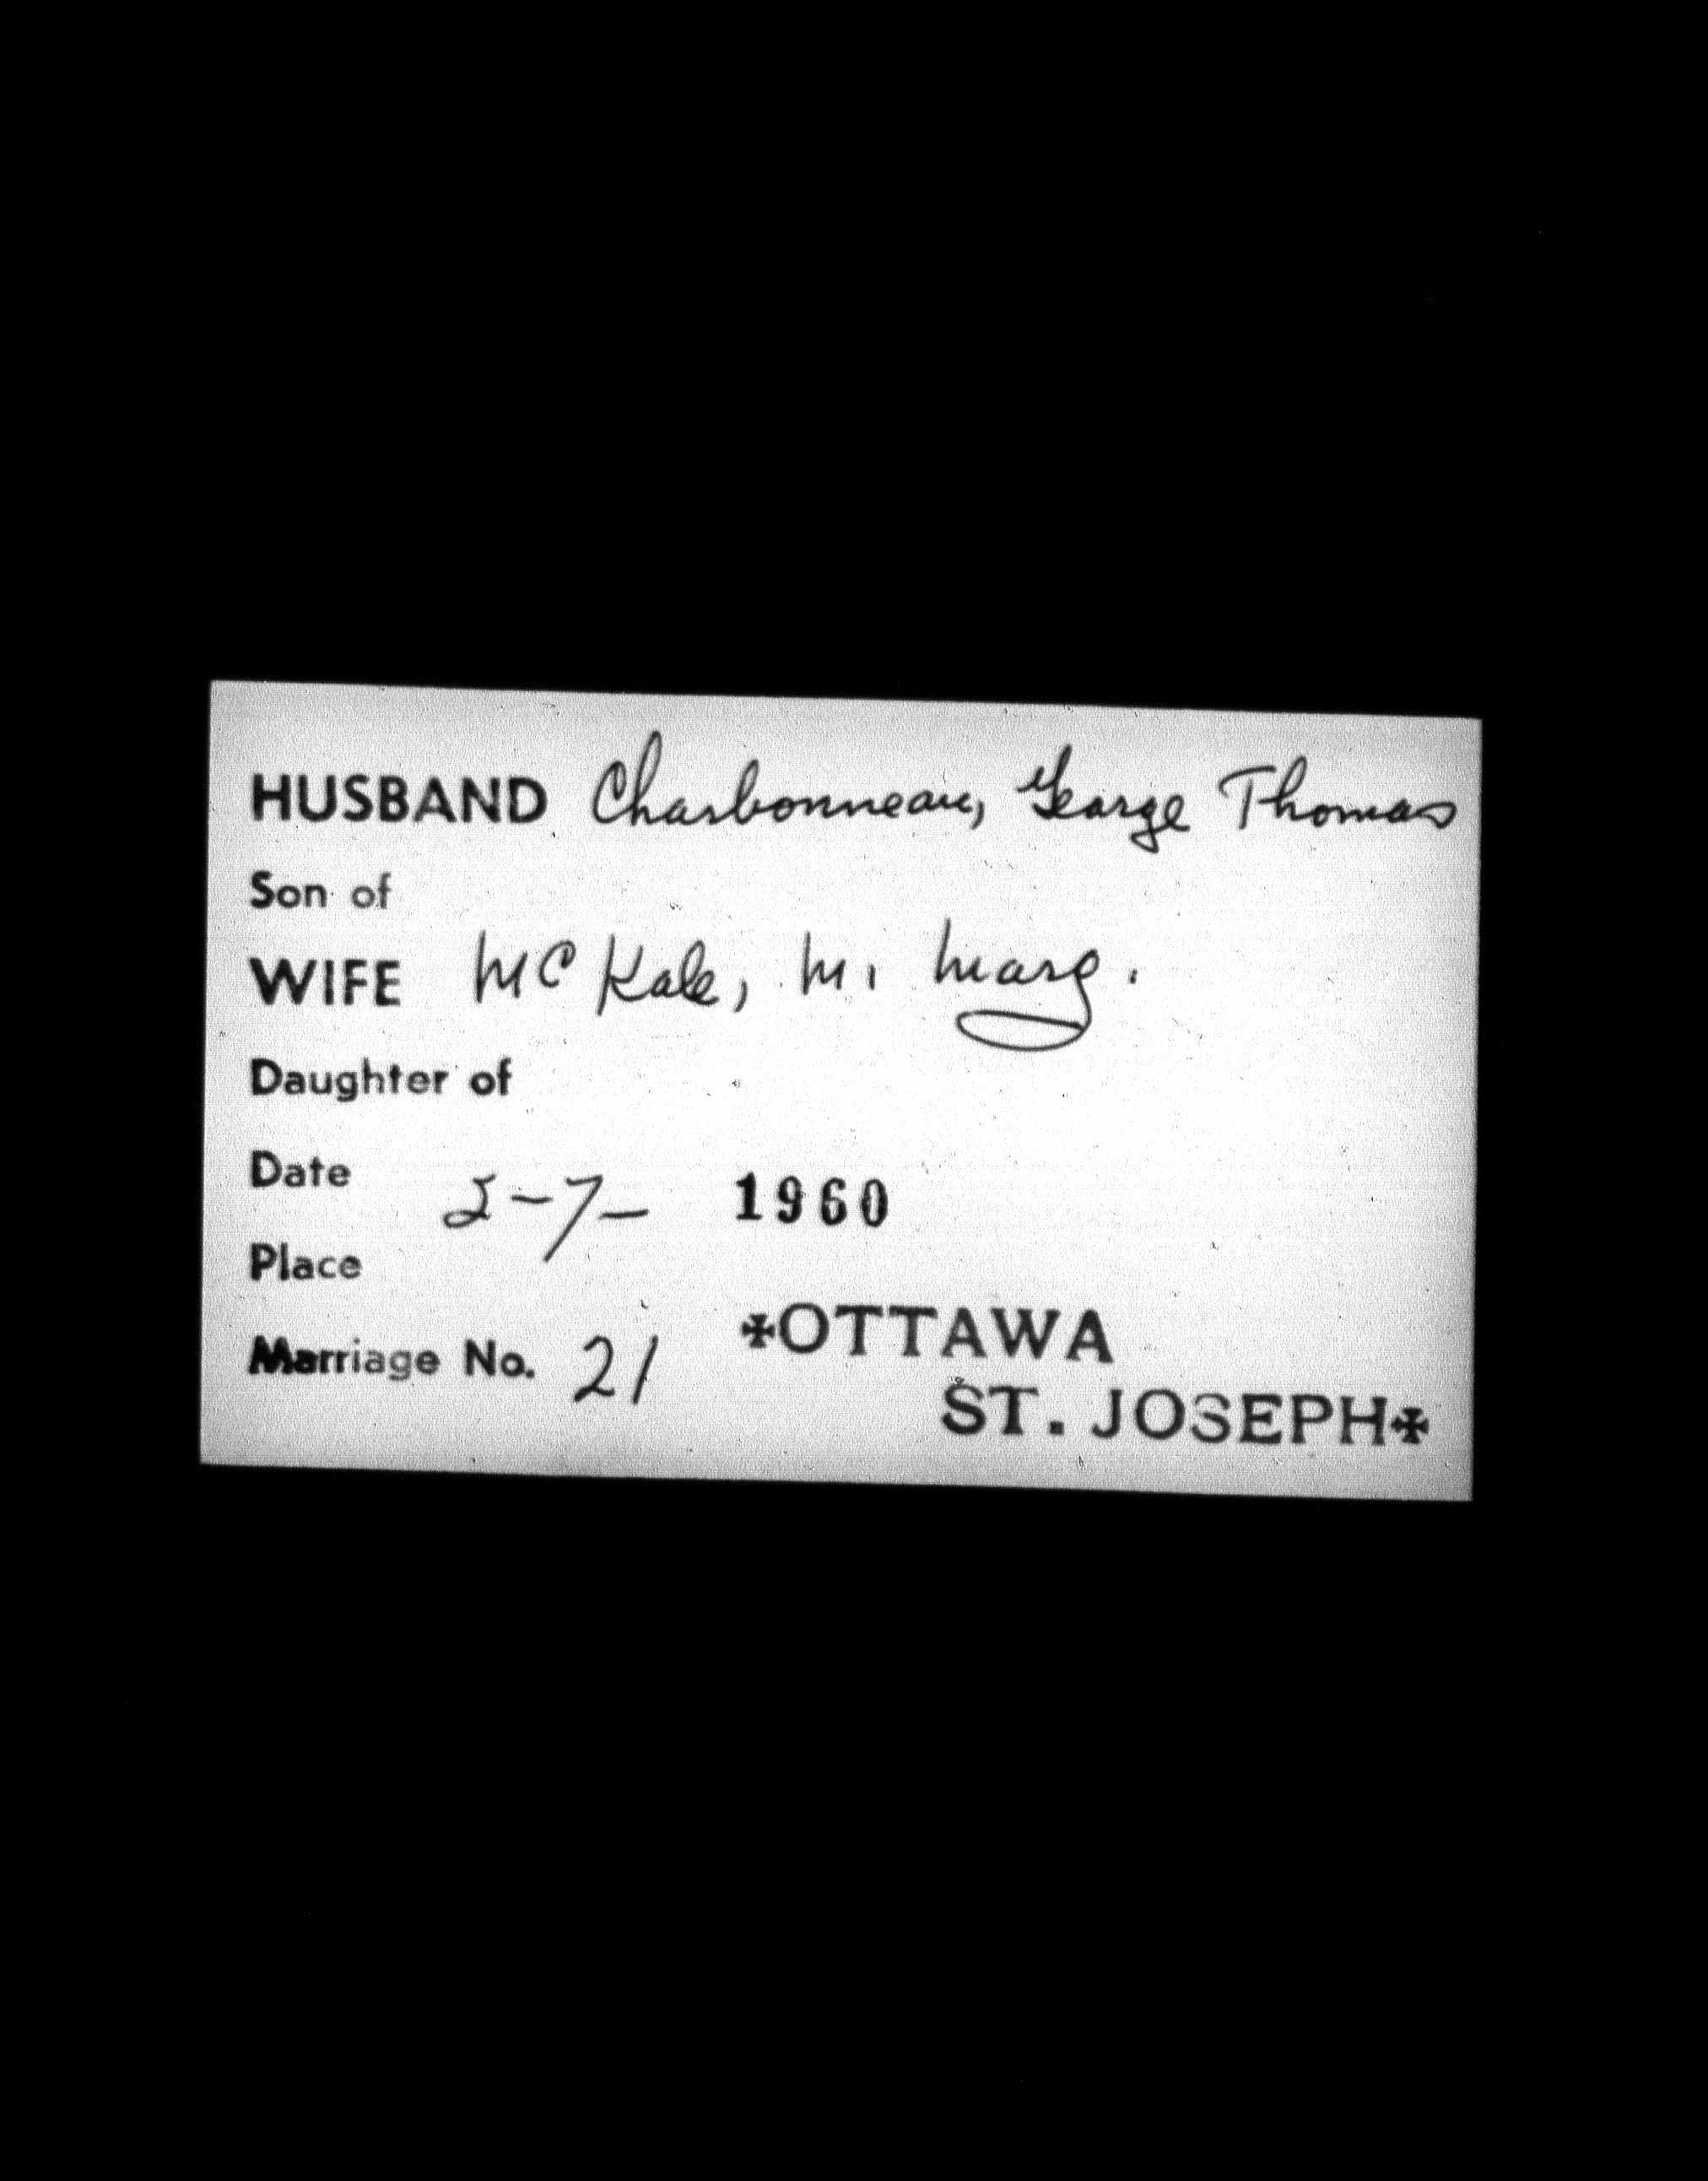 HUSBAND Charbonneau, George Thomas
Son of
WIFE McKale, M. Marg.
Daughter of
Date 2-7- 1960
Place
✠OTTAWA
Marriage No. 21
ST. JOSEPH✠